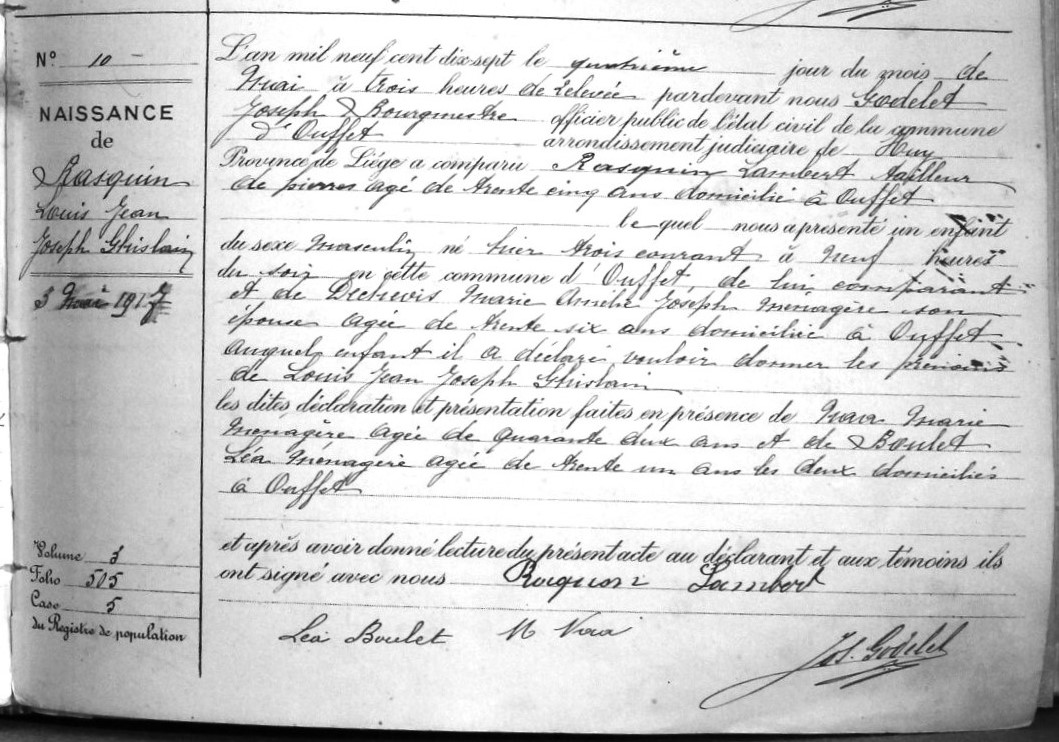 N° 10
NAISSANCE
de
Rasquin
Louis Jean
Joseph Ghislain
3 Mai 1917
L'an mil neuf cent dix-sept le quatrième jour du mois de
Mai à trois heures de relevée pardevant nous Godelet
Joseph Bourgmestre officier public de l'état civil de la commune
d'Ouffet arrondissement judiciaire de Huy
Province de Liége a comparu Rasquin Lambert tailleur
de pierres agé de trente cinq ans domicilié à Ouffet
le quel nous a présenté un enfant
du sexe masculin né hier trois courant à neuf heures
du soir en cette commune d'Ouffet, de lui comparant
et de Marie Joseph ménagère son
épouse agée de trente six ans domiciliée à Ouffet
auquel enfant il a déclaré vouloir donner les prénoms
de Louis Jean Joseph Ghislain
les dites déclaration et présentation faites en présence de Marie
ménagère agée de quarante deux ans et de Boulet
Léa ménagère agée de trente un ans les deux domiciliés
à Ouffet
et après avoir donné lecture du présent acte au déclarant et aux témoins ils
ont signé avec nous Raquin Lambert
Léa Boulet M
Jos. Godelet
Volume 3
Folio 505
Case 5
du Registre de population